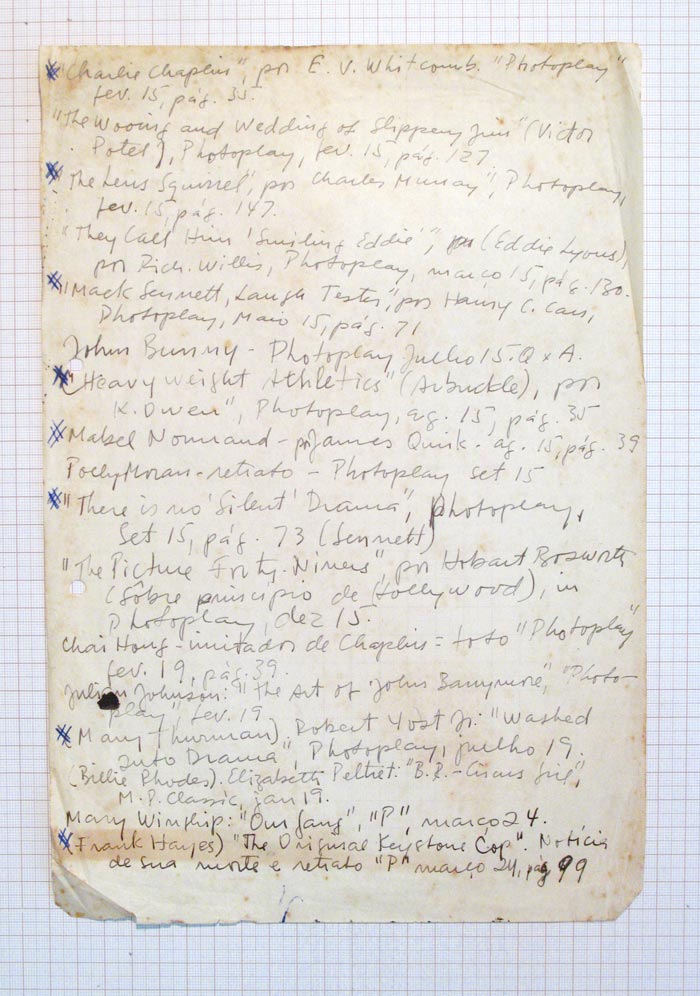 "Charlie Chaplin", por E. V. Whitcomb. "Photoplay"
fev. 15, pág. 35.
"The Wooing and Wedding of Slippery Jim" (Victor
Potel), Photoplay, fev. 15, pág. 127.
"The Lens Squirrel", por Charles Murray", Photoplay,
fev. 15, pág. 147.
"They Call Him 'Smiling Eddie'", (Eddie Lyons),
por Rich. Willis, Photoplay, março 15, pág. 130.
"Mack Sennett, Laugh Tester", por Harry C. Carr,
Photoplay, Maio 15, pág. 71
John Bunny - Photoplay Julho 15. Q x A.
"Heavyweight Athletics" (Arbuckle), por
K. Owen", Photoplay, ag. 15, pág. 35
Mabel Normand - por James Quirk - ag. 15, pág. 39
Polly Moran - retrato - Photoplay set 15
"There is no 'Silent' Drama", Photoplay,
Set 15, pág. 73 (Sennett)
"The Picture Forty-Niners", por Hobart Bosworth
(Sôbre princípio de Hollywood), in
Photoplay, dez 15.
Chai Hong - imitador de Chaplin = foto "Photoplay"
fev. 19, pág. 39.
Julian Johnson: "The Art of John Barrymore", "Photo-
play", fev. 19
(Mary Thurman). Robert Yost Jr: "Washed
Into Drama", Photoplay, julho 19.
(Billie Rhodes). Elizabeth Peltret: "B.R. - Circus Girl",
M.P. Classic, jan 19.
Mary Winship: "Our Gang", "P", março 24.
(Frank Hayes) "The Original Keystone Cop". Notícia
de sua morte e retrato "P" março 24, pág 99